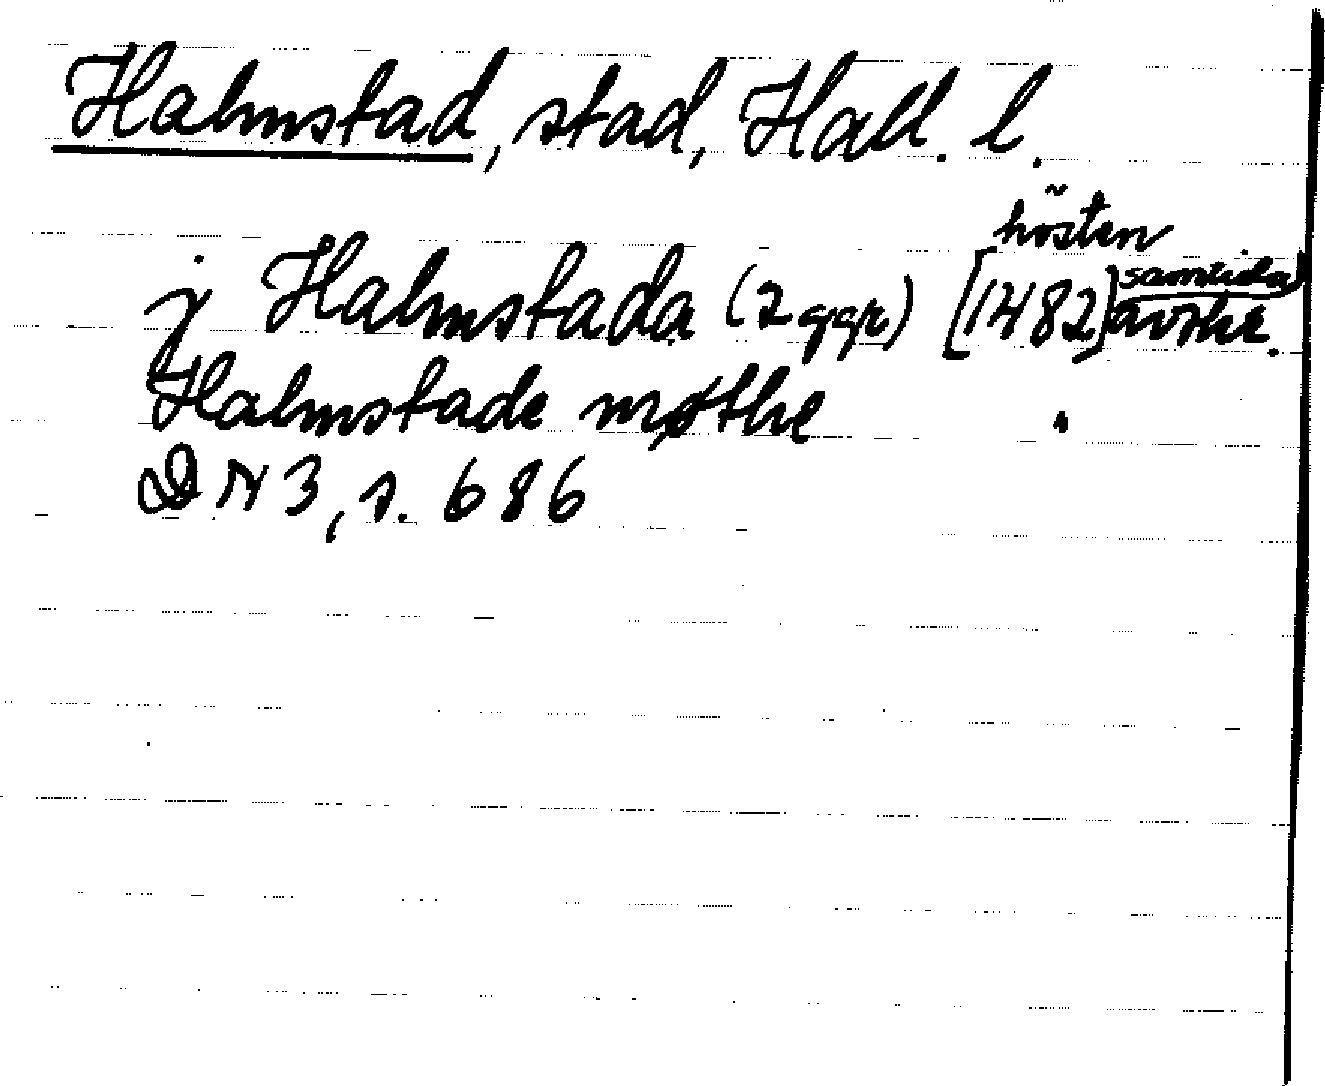 Halmstad, stad, Hall. l.
hösten
j Halmstada (2 ggr) [1482] samtida avskr.
Halmstade møthe
DN 3, s. 686